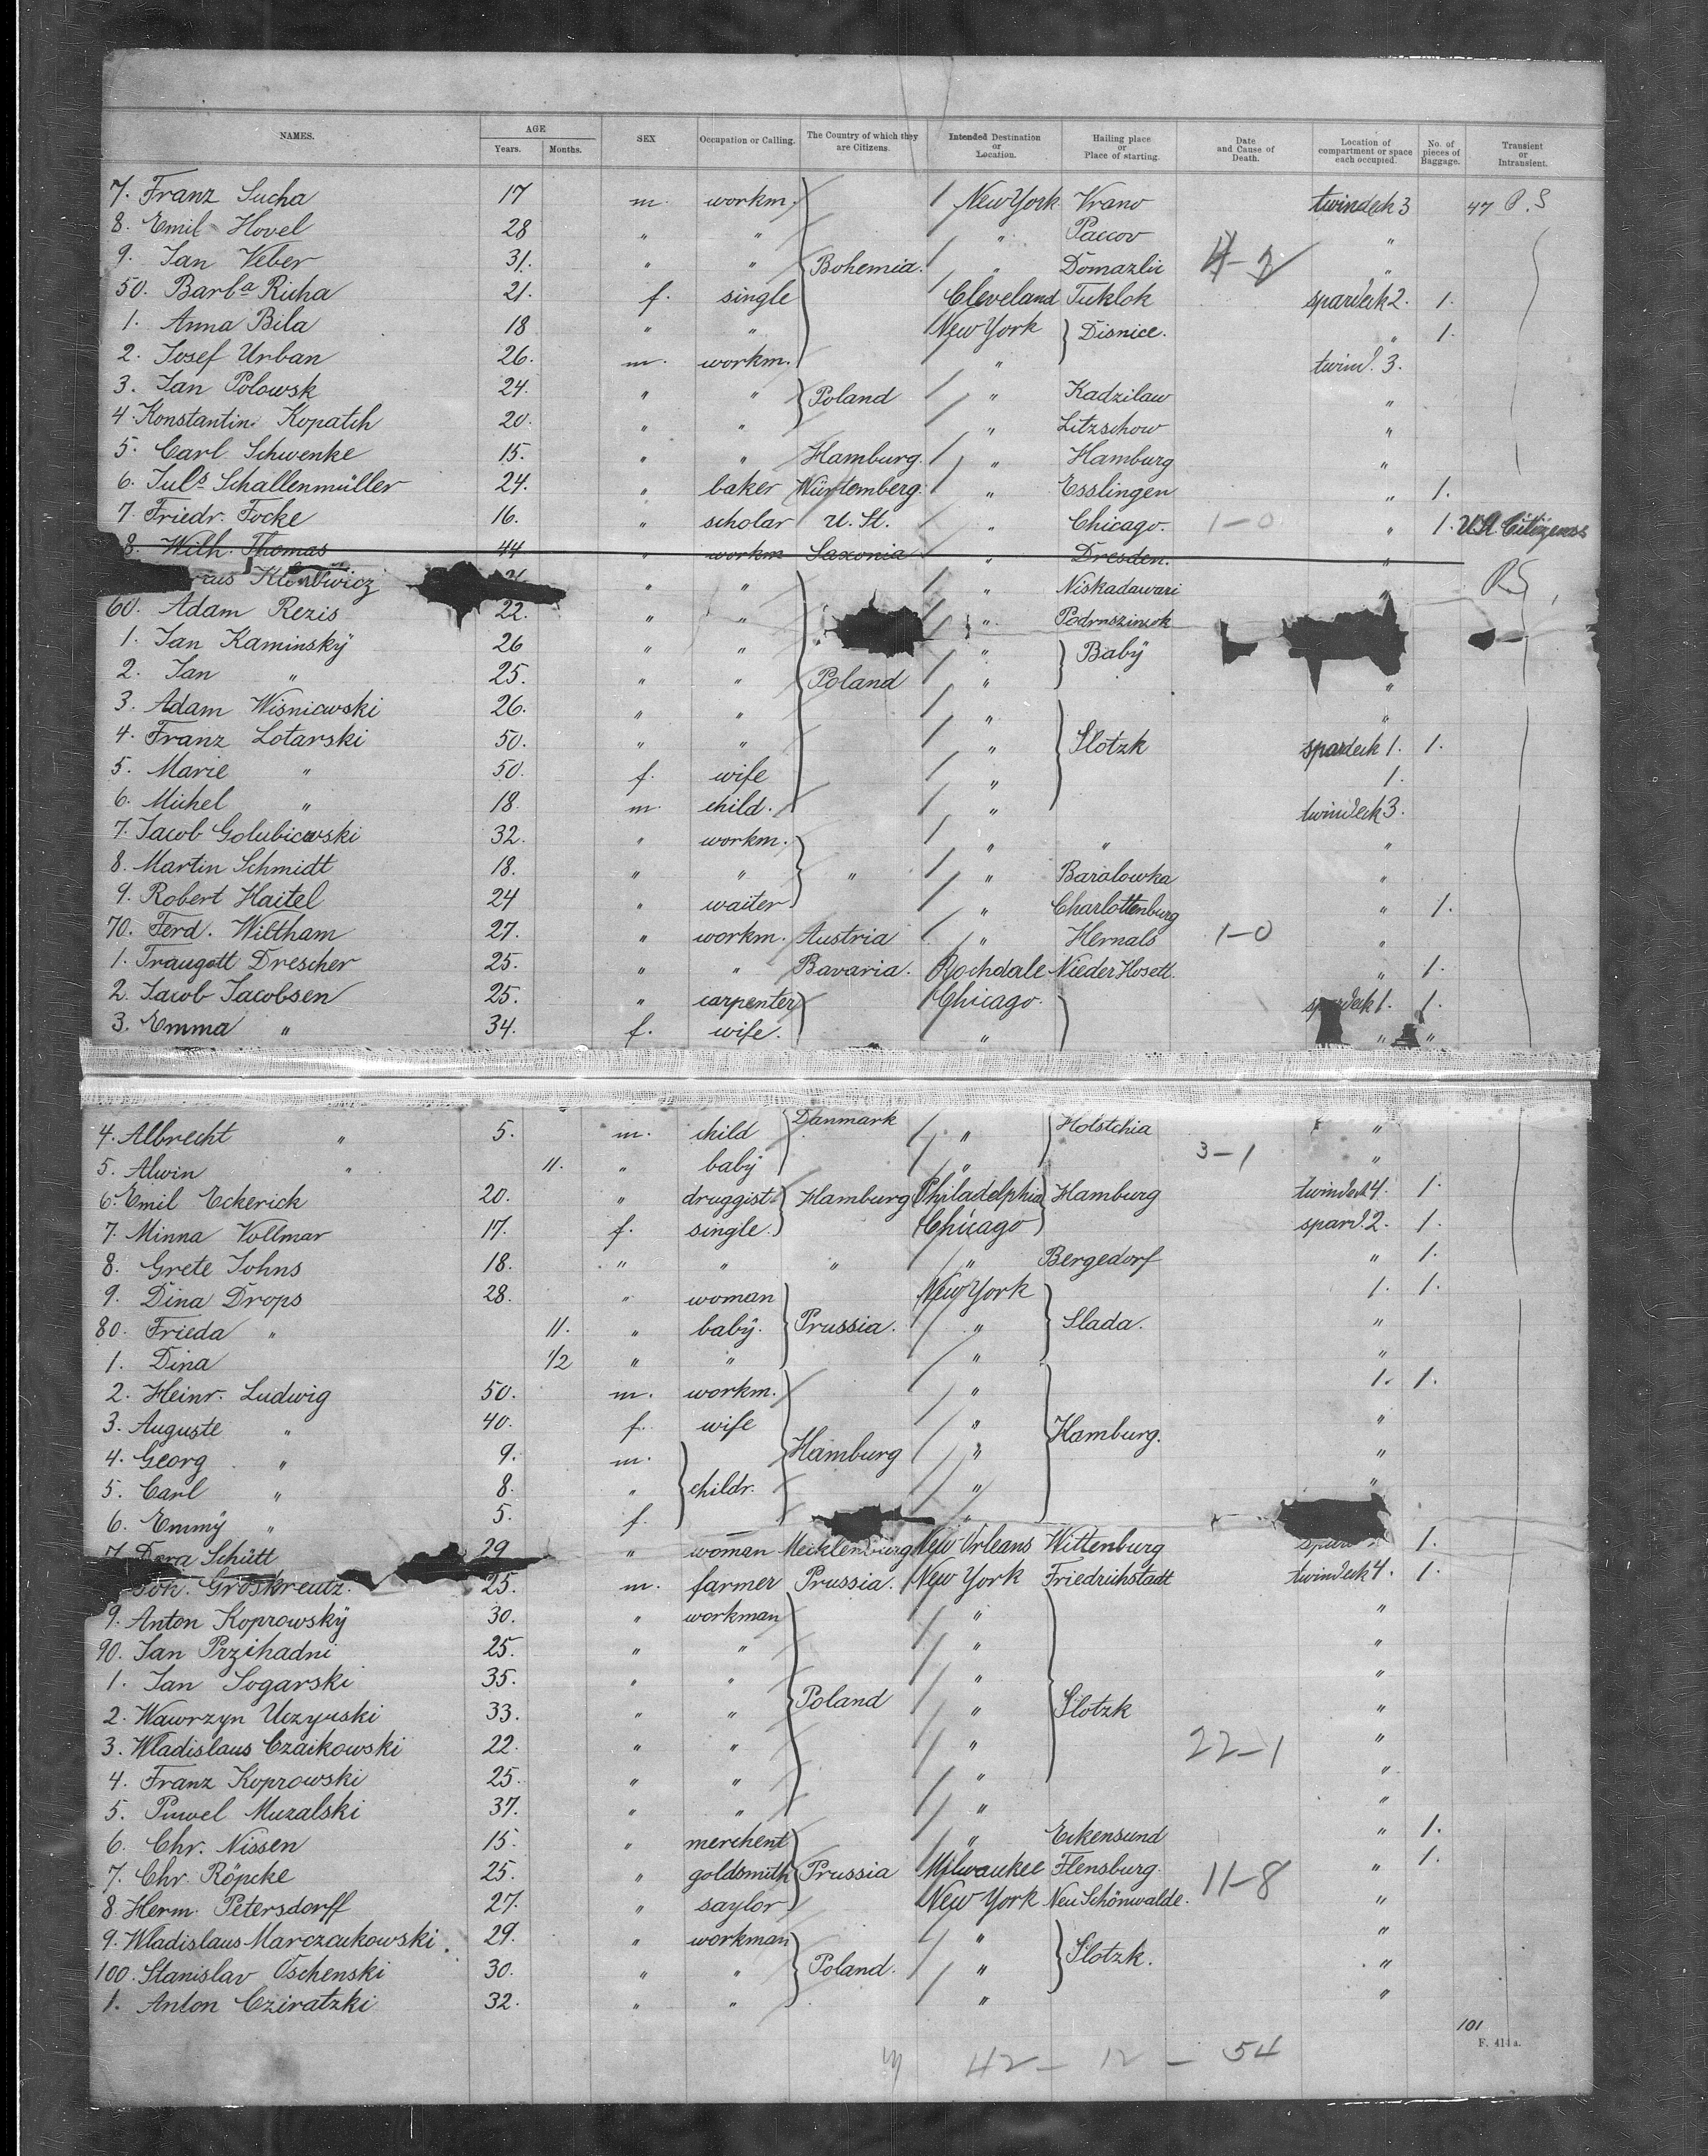 NAMES. AGE Years. Months. SEX Occupation or Calling. The Country of which they are Citizens. Intended Destination or Location. Hailing place or Place of starting. Date and Cause of Death. Location of compartment or space each occupied. No. of pieces of Baggage. Transient or Intransient.
7. Franz Sucha 17 m. workm. New York Vrano twindeck 3 47 P.S
8. Emil Hovel 28 " " " Paccov "
9. Jan Veber 31. " " Bohemia. " Domazlic "
50. Barbª Richa 21. f. single Cleveland Tuklok spardeck 2. 1.
1. Anna Bila 18 " " New York Disnice. " 1.
2. Josef Urban 26. m. workm. " twind. 3.
3. Jan Polowsk 24. " " Poland " Kadzilaw "
4. Konstantin Kopatch 20. " " " Litzschow "
5. Carl Schwenke 15. " " Hamburg. " Hamburg "
6. Juls Schallenmüller 24. " baker Würtemberg. " Esslingen " 1.
7. Friedr. Focke 16. " scholar U. St. " Chicago. 1-0 " 1. USt Citizens
8. Wilh. Thomas 44 " workm Saxonia " Dresden. "
" " " Niskadawari " P.S,
60. Adam Rezis 22. " " "
1. Jan Kaminskÿ 26 " " " " Babÿ
2. Jan " 25. " " Poland " "
3. Adam Wisniewski 26. " " " "
4. Franz Lotarski 50. " " " Slotzk spardeck 1. 1.
5. Marie " 50. f. wife " 1.
6. Michel " 18. m. child. " twindeck 3.
7. Jacob Golubicwski 32. " workm. " " "
8. Martin Schmidt 18. " " " " Baralowka "
9. Robert Haitel 24 " waiter " Charlottenburg " 1.
70. Ferd. Wiltham 27. " workm. Austria " Hernals 1-0 "
1. Traugott Drescher 25. " " Bavaria. Rochdale Nieder Hosett. " 1.
2. Jacob Jacobsen 25. " carpenter Chicago. spardeck 1. 1.
3. Emma " 34. f. wife. " " "
4. Albrecht " 5. m. child Danmark " Holstchia "
5. Alwin " 11. " baby " 3-1 "
6. Emil Eckerick 20. " druggist. Hamburg Philadelphia Hamburg twindeck 4. 1.
7. Minna Vollmar 17. f. single. Chicago spard. 2. 1.
8. Grete Johns 18. " " " " Bergedorf " 1.
9. Dina Drops 28. " woman New York 1. 1.
80. Frieda " 11. " babÿ. Prussia. " Slada. "
1. Dina 1/2 " " " "
2. Heinr. Ludwig 50. m. workm. " 1. 1.
3. Auguste " 40. f. wife " Hamburg. "
4. Georg " 9. m. Hamburg " "
5. Carl " 8. " childr. " "
6. Emmÿ " 5. f. "
7. Dora Schütt 29 " woman Mecklenburg New Orleans Wittenburg 1.
Groskreutz. 25. m. farmer Prussia. New York Friedrichstadt twindeck 4. 1.
9. Anton Koprowskÿ 30. " workman " "
90. Jan Przihadni 25. " " " "
1. Jan Sogarski 35. " " " "
2. Wawrzyn Uczynski 33. " " Poland " Slotzk "
3. Wladislaus Czaikowski 22. " " " 22-1 "
4. Franz Koprowski 25. " " " "
5. Pawel Muzalski 37. " " " "
6. Chr. Nissen 15. " merchent " Eckensund " 1.
7. Chr. Röpcke 25. " goldsmith Prussia Milwaukee Flensburg. 11-8 " 1.
8. Herm. Petersdorff 27. " saylor New York Neu Schönwalde. "
9. Wladislaus Marczcukowski. 29. " workman " "
100. Stanislav Oschenski 30. " " Poland. " Slotzk. "
1. Anton Cziratzki 32. " " " "
101
F. 414a.
42 - 12 - 54